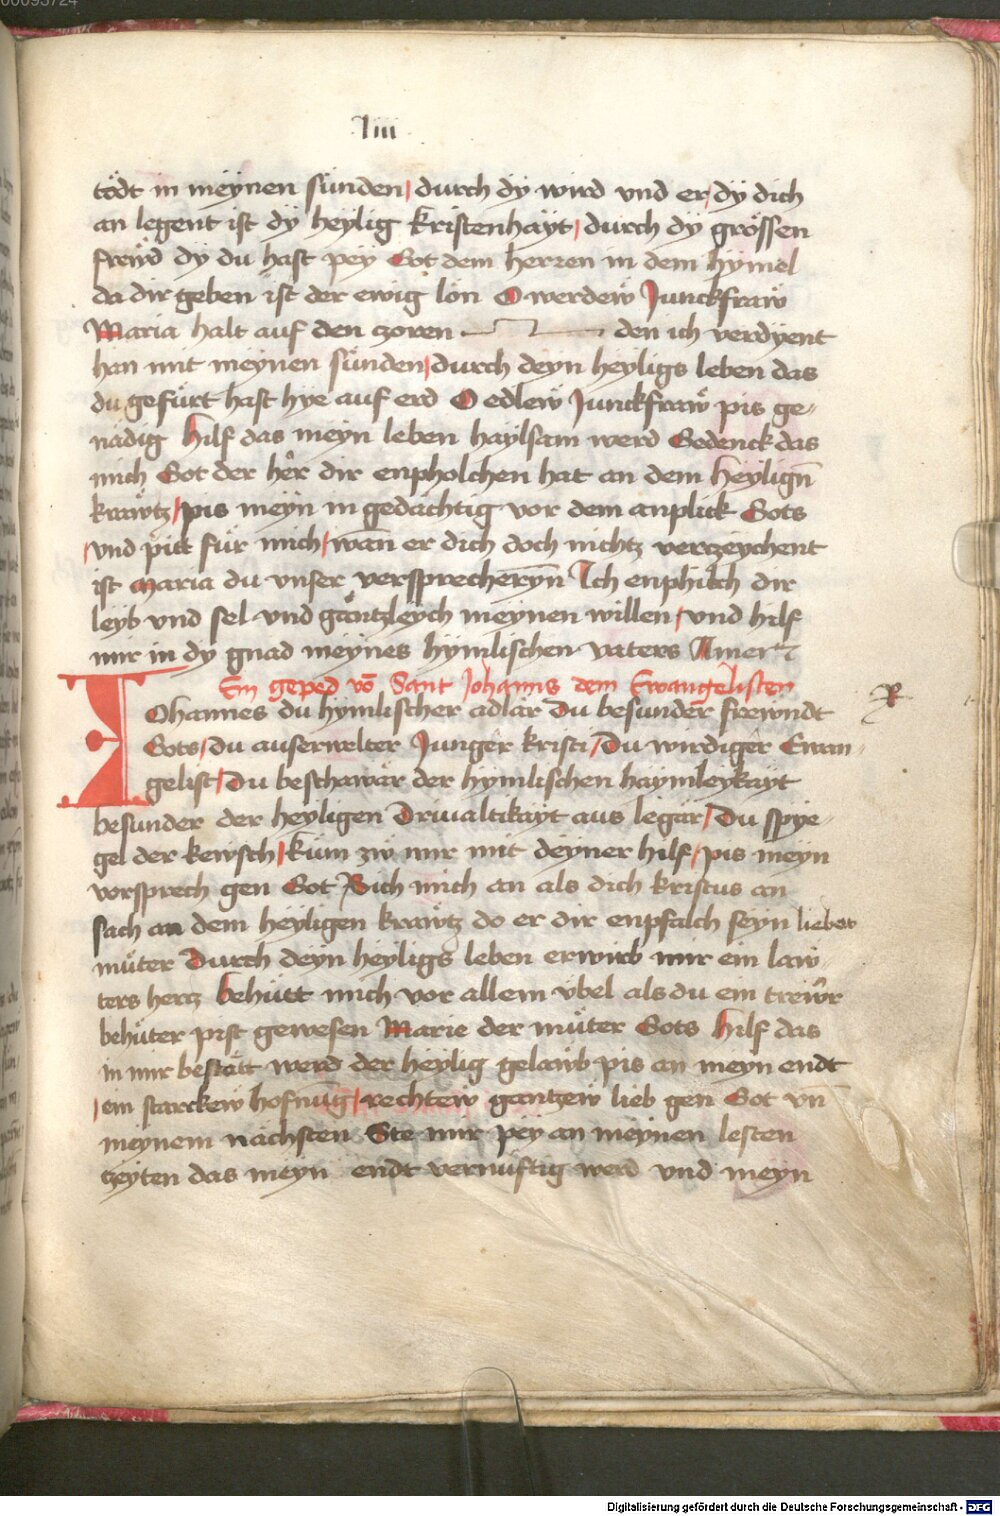 00093724
liii
tödt in meynen sünden / durch dÿ wird vnd er / dÿ dich
an legent ist dÿ heylig kristenhaÿt / durch dÿ grössen
frewd dÿ du hast peÿ Got dem herren in dem hÿmel
da dir geben ist der ewig lon O werdew Junckfraw
Maria halt auf den zoren den ich verdyent
han mit meynen sünden / durch deyn heyligs leben das
du gefürt hast hye auf erd O edlew Junckfraw pis ge-
nadig hilf das meyn leben haylsam werd Gedenck das
mich Got der her dir enpholchen hat an dem heyligñ
krawtz / pis meyn in gedachtig vor dem anplick Gots
/ vnd pitt für mich / wañ er dich doch nichtz verczeychent
ist Maria du vnser versprecheryñ Ich enphilch dir
leyb vnd sel vnd gantzleych meynen willen / vnd hilf
mir in dy gnad meynes hymlischen vaters Amen
Ein geped võ Sant Johanns dem Ewangelisten
IOhannes du hymlischer adlar Du besunder frewndt
Gots / Du auserwelter Junger kristi / Du wirdiger Ewan-
gelist / Du beschawar der hymlischen haymleykayt
besunder der heyligen Driualtikayt aus legar / Du spye-
gel der kewsch / küm zw mir mit deyner hilf / pis meyn
vorsprech gen Got Sich mich an als dich kristus an
sach an dem heyligen krawtz do er dir enpfalch seyn lieber
müter Durch deyn heyligs leben erwirb mir ein law-
ters hercz behütt mich vor allem vbel als du ein trewr
behüter pist gewesen Marie der müter Gots hilf das
in mir bestätt werd der heylig gelawb pis an meyn endt
/ ein starckew hofnung / rechtew gantzew lieb gen Got vñ
meynem nächsten Ste mir pey an meynen lesten
czeyten das meyn endt vernüftig werd vnd meyn
Digitalisierung gefördert durch die Deutsche Forschungsgemeinschaft - DFG